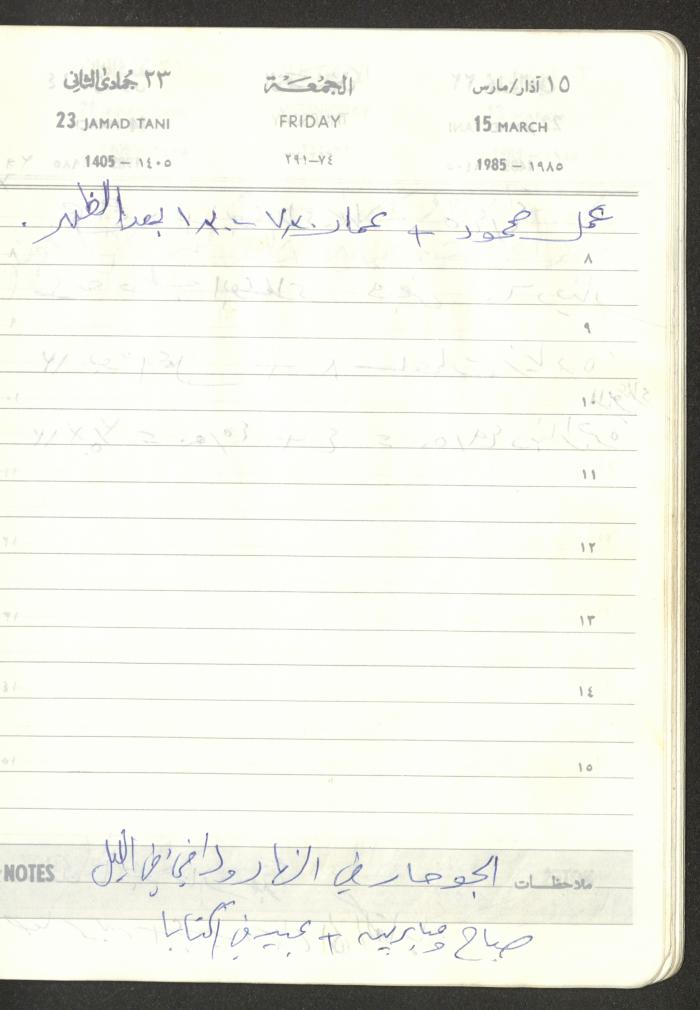 ١٥ آذار/مارس الجمعة ٢٣ جمادى الثاني
15 MARCH FRIDAY 23 JAMAD TANI
1985 – ١٩٨٥ ٧٤–٢٩١ 1405 – ١٤٠٥
عمل محمود + عمار ٧٫٣٠ – بعد الظهر.
٨
٩
١٠
١١
١٢
١٣
١٤
١٥
ملاحظات الجو حار في النهار ودافئ في الليل NOTES
صباح + عبير في